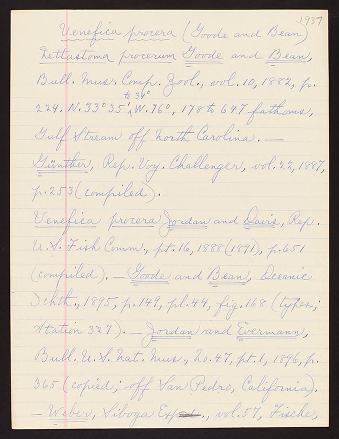 1937
Venefica procera (Goode and Bean)
Nettastoma procerum Goode and Bean,
Bull. Mus. Comp. Zool., vol. 10, 1882, p.
to 34°
224. N. 33° 35', W. 76°, 178 to 647 fathoms,
Gulf Stream off North Carolina. —
Günther, Rep. Voy. Challenger, vol. 22, 1887,
p. 253 (compiled).
Venefica procera Jordan and Davis, Rep.
U. S. Fish Comm., pt. 16, 1888 (1891), p. 651
(compiled). — Goode and Bean, Oceanic
Ichth., 1895, p. 149, pl. 44, fig. 168 (types;
Station 327). — Jordan and Evermann,
Bull. U. S. Nat. Mus., No. 47, pt. 1, 1896, p.
365 (copied; off San Pedro, California).
— Weber, Siboga Exped., vol. 57, Fische,